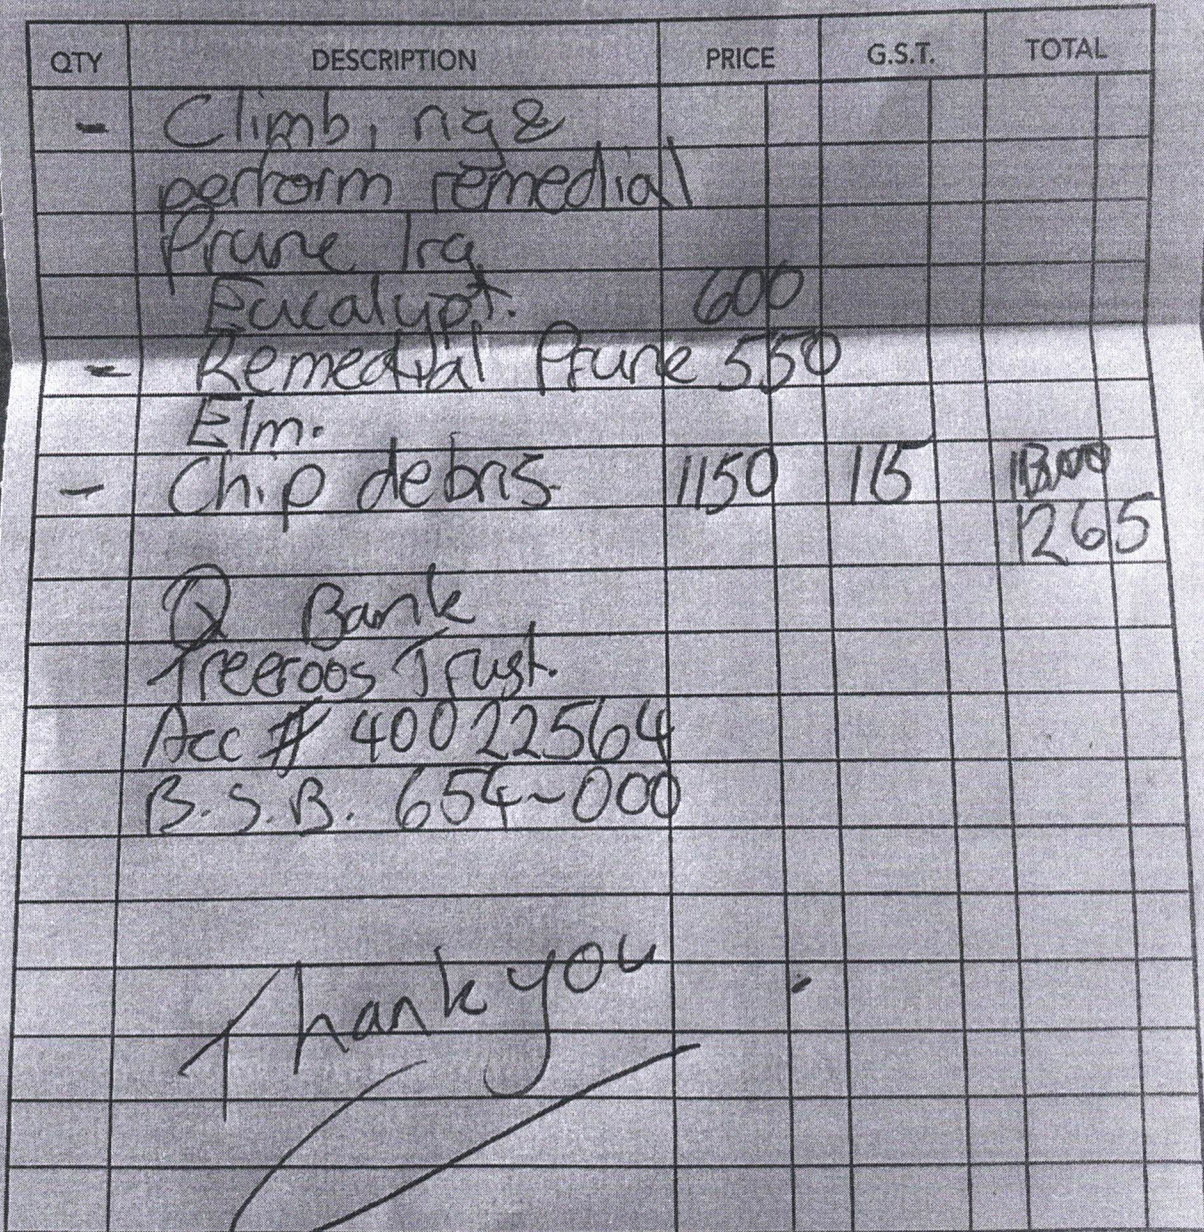 QTY DESCRIPTION PRICE G.S.T. TOTAL
- Climb, rig &
perform remedial
Prune lrg
Eucalypt. 600
- Remedial Prune 550
Elm.
- Chip debris. 1150 115
1265
Q Bank
Treeroos Trust.
Acc # 40022564
B.S.B. 654-000
Thank you